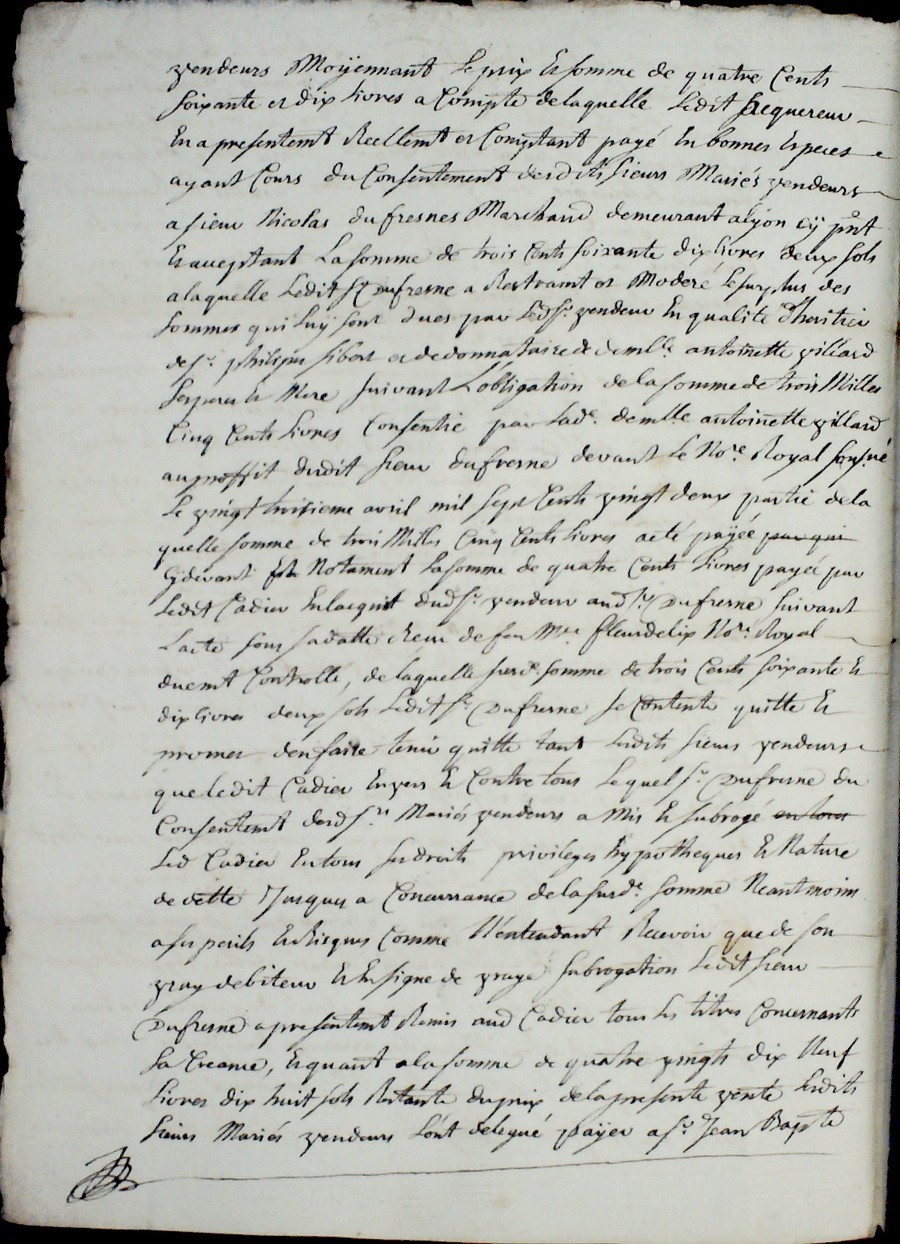 vendeurs Moÿennant le prix & somme de quatre Cents
soixante et dix livres a Compte delaquelle ledit sr acquereur
En a presentemt Reellemt et Comptant payé En bonnes Especes
ayant Cours du Consentement desdits sieurs Mariés vendeurs
a sieur Nicolas dufresnes Marchand demeurant alyon cÿ pñt
& acceptant La somme de trois Cents soixante dix livres deux sols
a laquelle Ledit Sr Dufresne a Restraint et Moderé le surplus des
sommes qui luÿ sont dues par Ledsr. vendeur En qualité d'heritier
de sr. philipes sibert et de donnataire de demlle. antoinette villard
ses pere & Mere suivant L'obligation de la somme de trois Milles
Cinq Cents livres Consentie par Lade. demlle antoinette villard
au proffit dudit sieur dufresne devant Le Nore Royal sousné
Le vingt troisieme avril mil sept Cents vingt deux partie de la
quelle somme de trois Milles Cinq Cents livres a eté payée par qui
Cÿdevant Notament la somme de quatre Cents Livres payée par
Ledit Cadier En lacquit dudsr. vendeur audsr. Dufresne suivant
Lacte sous sa datte Receu de feu Mre fleurdelix Nore. Royal
duemt Controllé, de laquelle surde. somme de trois Cents soixante &
dix livres deux sols Ledit sr. Dufresne se Contente quitte &
promet d'en faire tenir quitte tant Lesdits sieurs vendeurs
que ledit Cadier Envers & Contre tous Lequel sr. Dufresne du
Consentemt desdsrs. Mariés vendeurs a Mis & subrogé en tous
Led Cadier En tous ses droits privileges hÿpotheques & Nature
de dette Jusques a Concurrance de la surde. somme Neantmoins
a ses perils & Risques Comme N'entendant Recevoir que de son
vray debiteur & En signe de vraye subrogation Ledit sieur
Dufresne a presentemt Remis aud Cadier tous les titres Concernants
La Creance, & quant a la somme de quatre vingts dix Neuf
livres dix huit sols Restante du prix de la presente vente Lesdits
sieurs Mariés vendeurs L'ont delegué païjer a sr. Jean Bapte